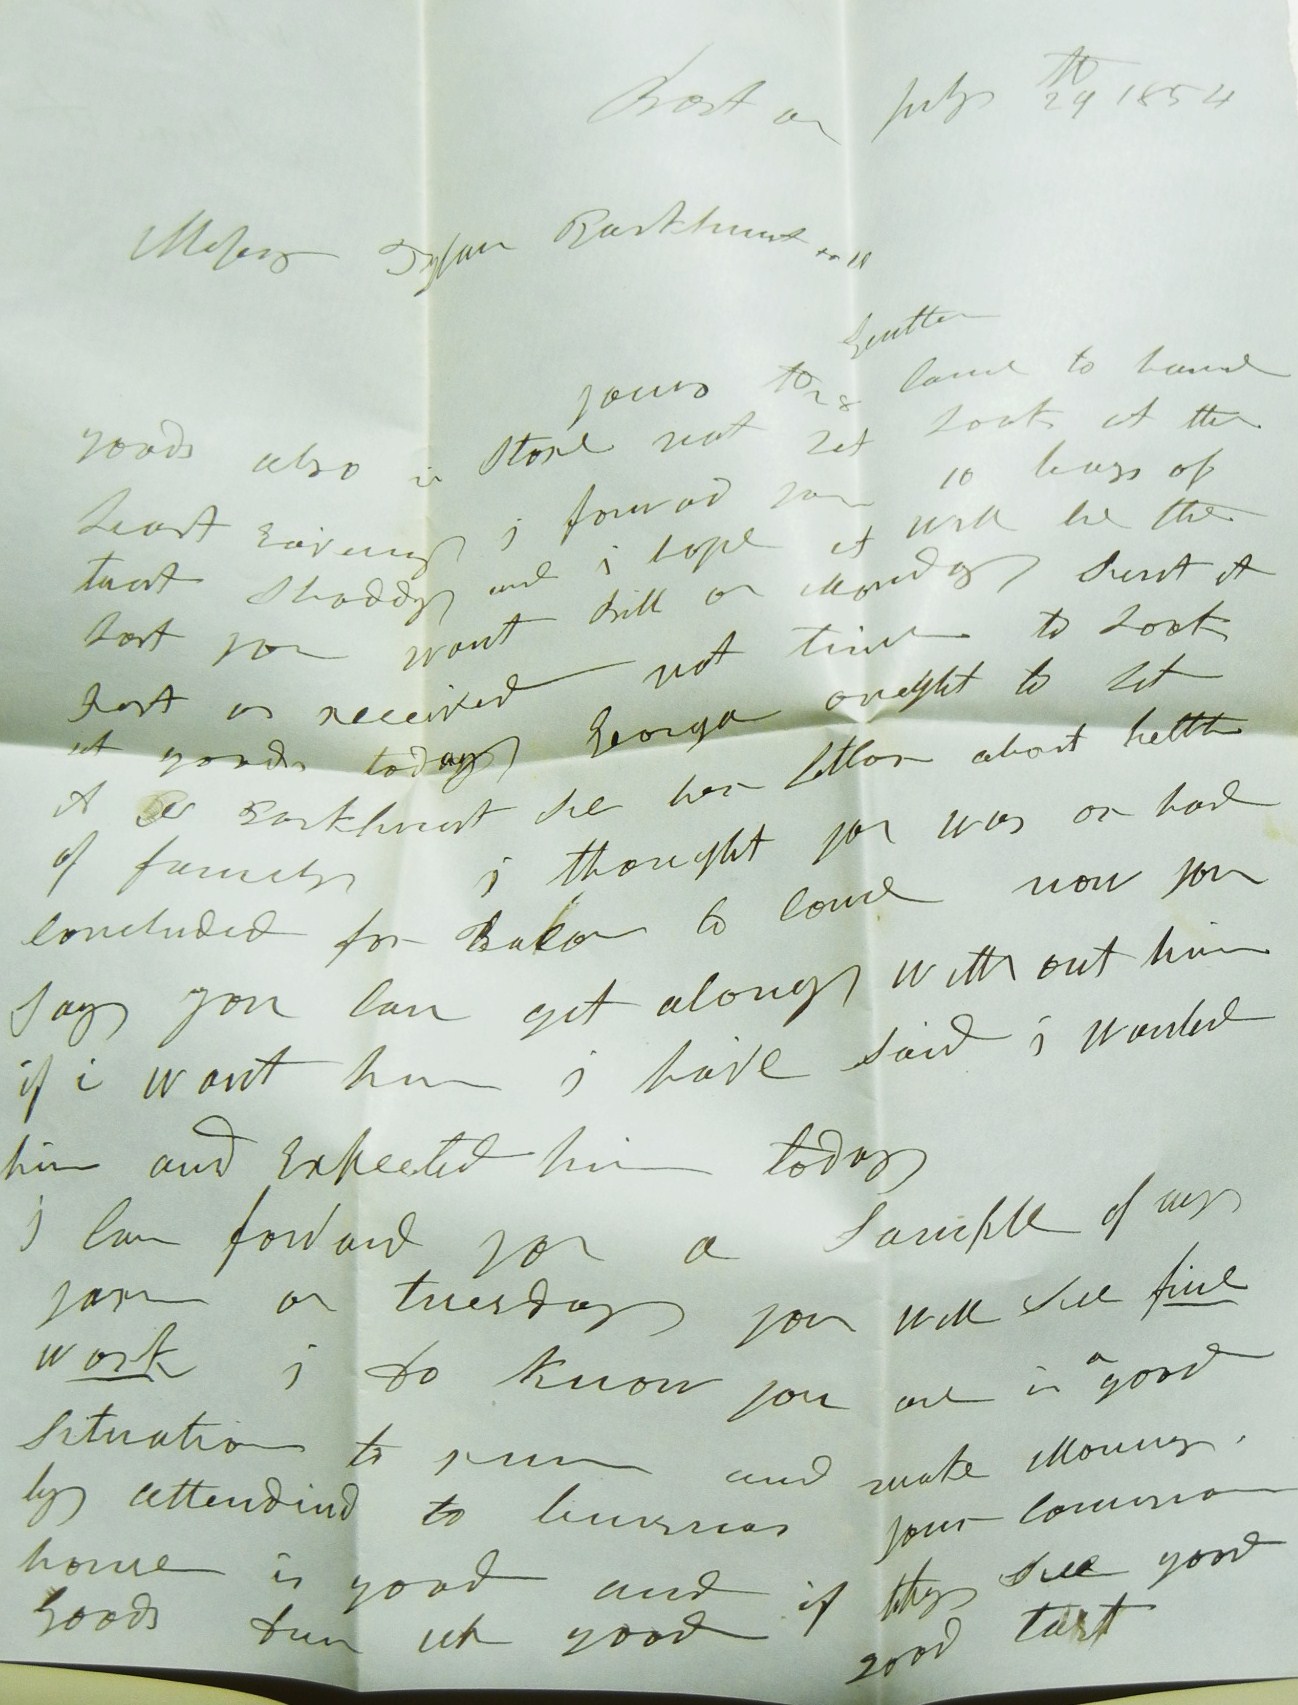 Boston July 29th 1854
Messrs Parkhurst
Gentlemen
yours th 28 came to hand
goods also in Store not yet Lookt at the
Last Evening i forward you 10 bags of
Shoddy and i hope it will be the
Sort you want bill on Monday Sent it
Just as received not time to Look
at goods today George ought to Let
it Parkhurst see her Letter about helth
of family i thought you was or had
concluded for to come now you
Say you can get along with out him
if i want him i have Said i wanted
him and Expected him today
i can forward you a Sample of my
yarn on tuesday you will See fine
work i do know you are in a good
Situation to run and make Money.
by attendind to buisness your
house is good and if they See good
Goods turn up good good